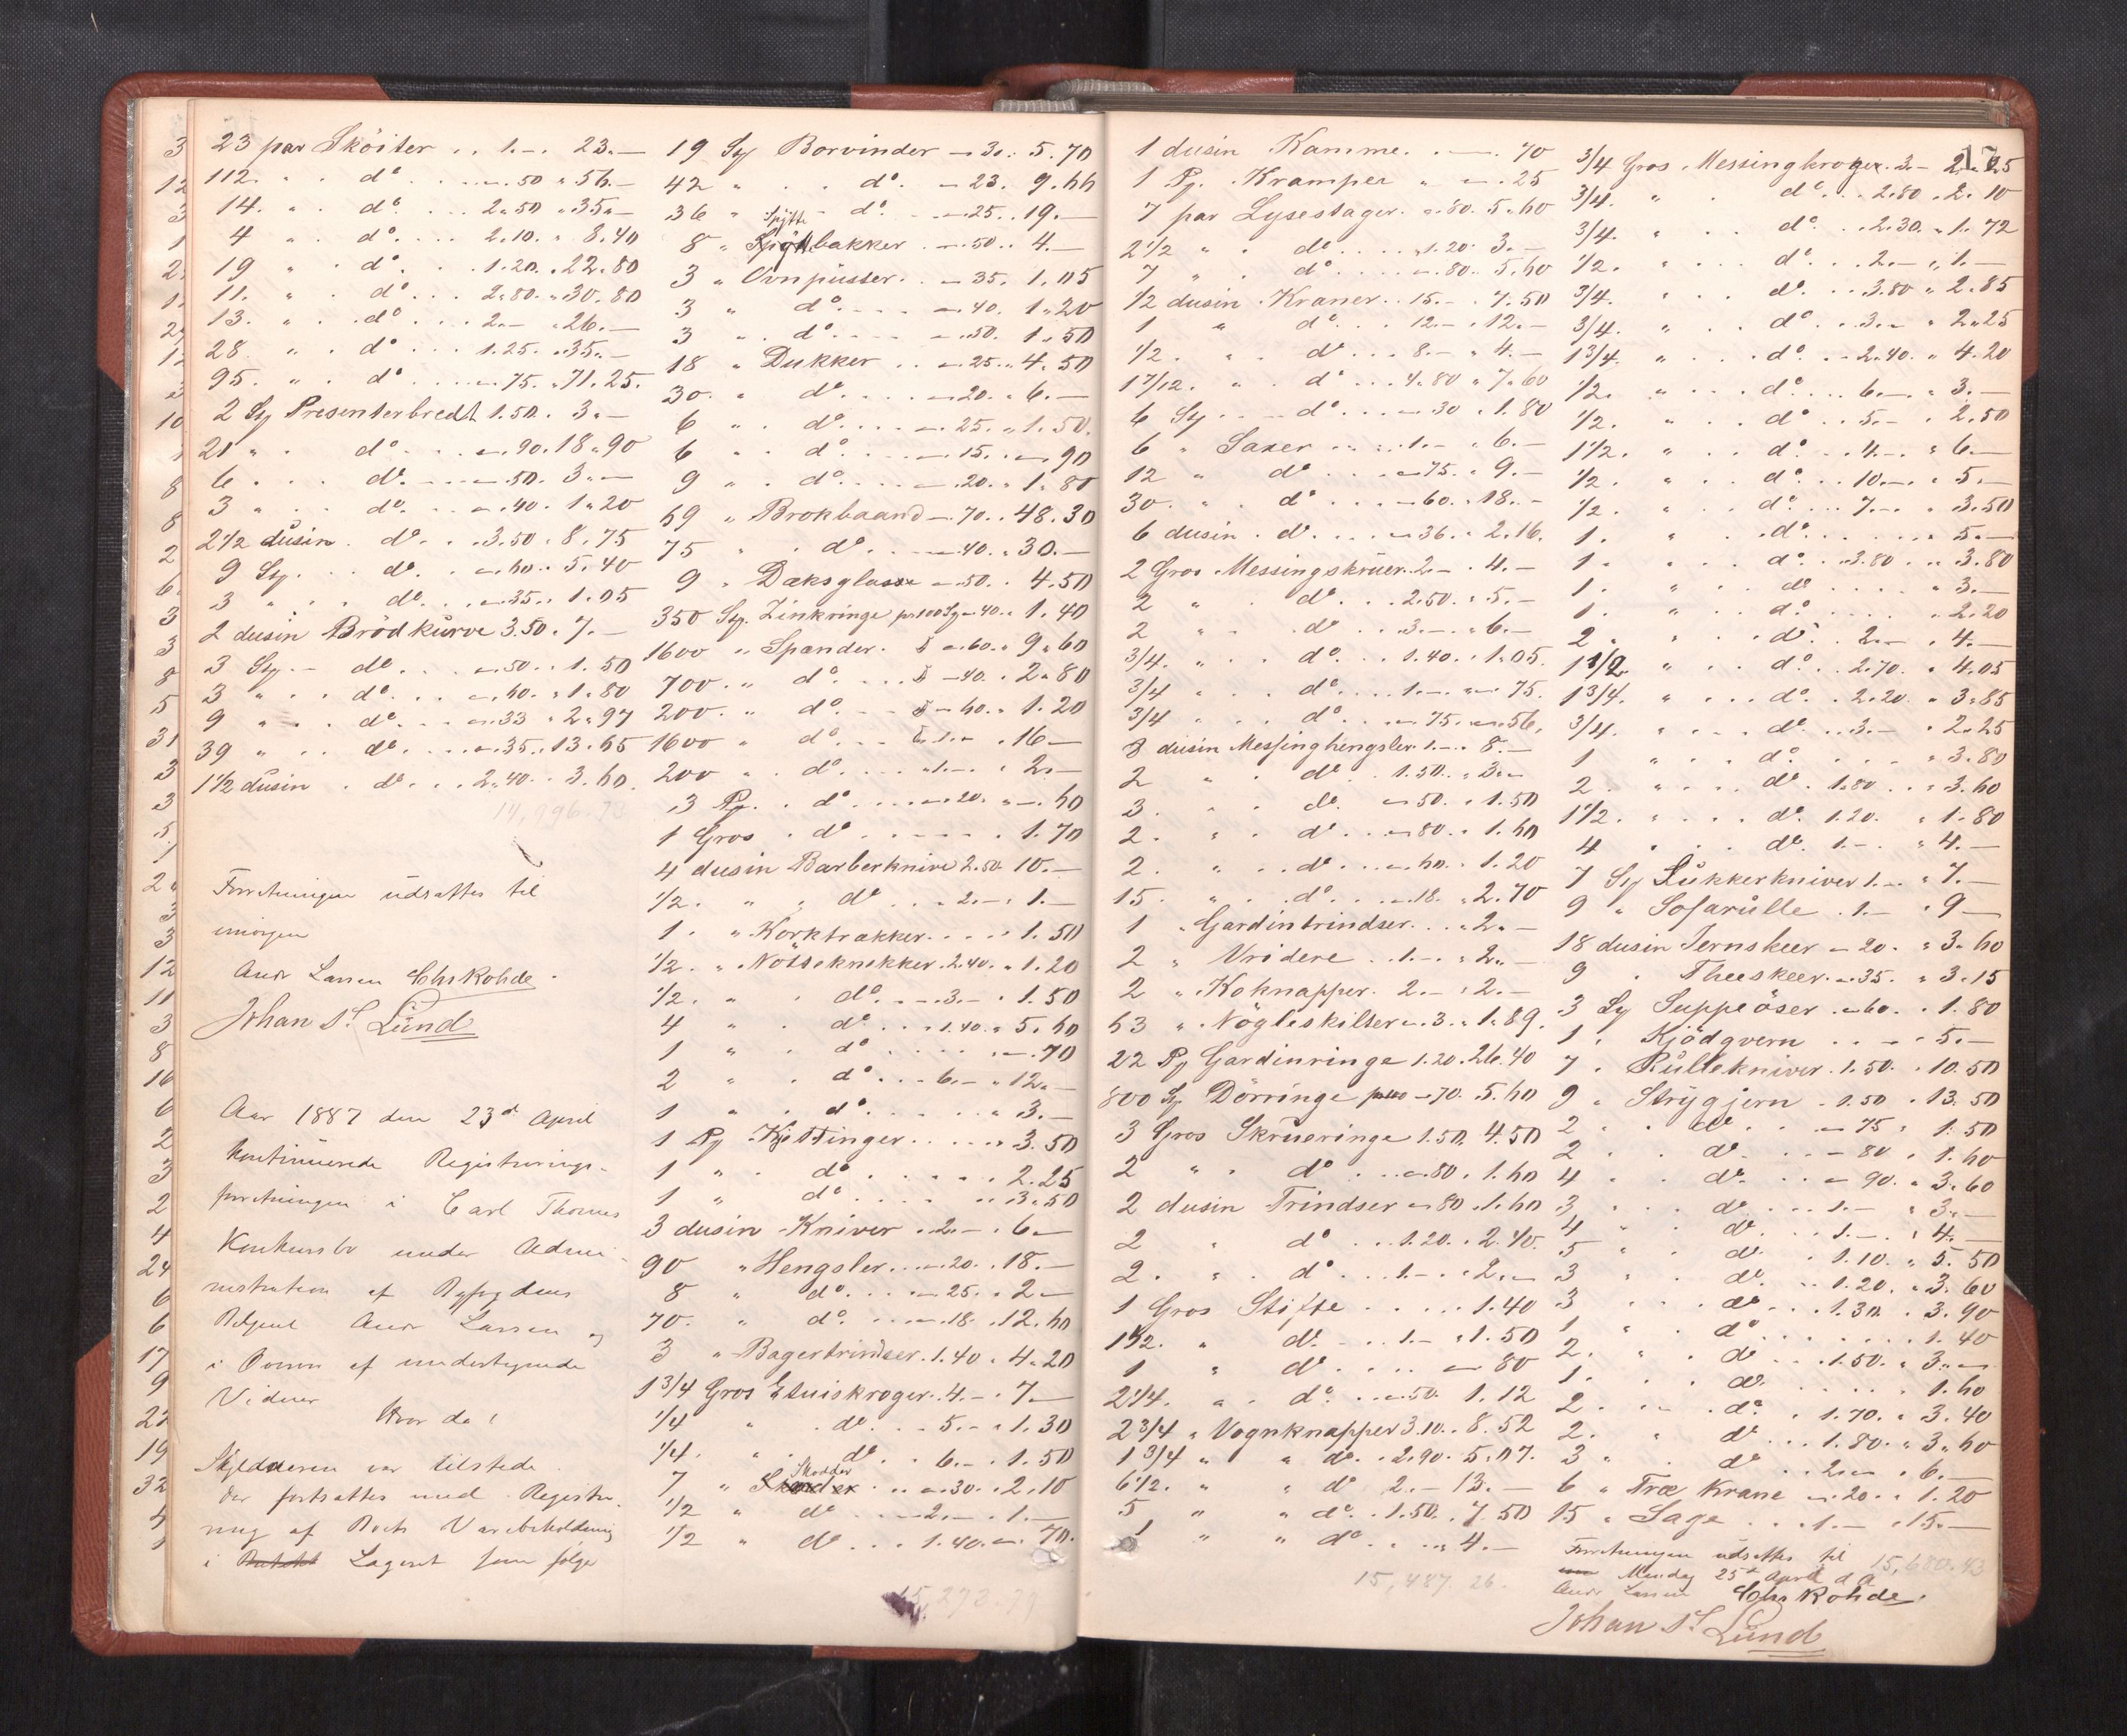 23 par Sköiter . . 1.-. 23.—
112. " . do . . . . —.50 " 56.—
14. " . do. . . . 2.50 " 35.—
4 " . do. . . . 2.10. " 8.40
19 " . do . . . 1.20. . 22.80
11. " . do. . . 2.80. " 30.80
13. " . do . . . 2.— " 26.—
28. " . do . . . 1.25. " 35.—
95. " . do . . . —.75. " 71.25.
2 Sty Presenterbredt 1.50. 3.—
21 " . do . . —.90. 18.90
6 . . . do. . . —.50. 3.—
3 " . . do. . . —.40. 1.20
2 1/2 dusin . do. . . 3.50 . 8.75
9 Sty. . . do. . —.60. . 5.40
3 " . . do. . —.35. . 1.05
2 dusin Brödkurve 3.50. 7.—
3 Sty. – do. . . —.50. . 1.50
3 " . . do. . . —.60. " 1.80
9 " . . do. . . —.33 " 2.97
39 " . . do. . . —.35. . 13.65
1 1/2 dusin . do . . . 2.40. . 3.60.
14,996.73
Forretningen udsattes til
imorgen
Andr Larsen Chs Rohde.
Johan St Lund
Aar 1887 den 23d April
kontinuerede Registrerings-
forretningen i Carl Thomes
Konkursbo under Admi-
nistration af Byfogdens
Betjent Andr Larsen og
i Overvær af undertegnede
Vidner
Hvorda!
Skyldneren var tilstede.
Der fortsattes med Registre-
ring af Boets Varebeholdning
i Butikk Lageret som følger
19 Sty Borvinder —.30. 5.70
42 " . . do. —.23. 9.66
36 " . . do. . —.25. . 19.—
8 " Spyttebakker . —.50. . 4.—
3 " Ovnpusser. . —.35. 1.05
3 " do. . . . —.40. 1.20
3 " . do. . . . —.50. 1.50
18 " Dukker . . —.25. " 4.50
30. " do. . . . —.20. " 6.—
6 " . do. . . . —.25. " 1.50.
6 " . do. . . . —.15. . —.90
9 " . do. . . . —.20. " 1.80
69 " Brokbaand —.70. . 48.30
75 " . do. . . —.40. " 30.—
9 " Dæksglasse —.50. . 4.50
350 Sty. Zinkringe pr 100 Sty —.40. " 1.40
1600 " Spænder. —.60. " 9.60
700. " do. . . —.40. . 2.80
200. " do. . —.60. " 1.20
1600 " do. . . 1.— . 16.—
200 " . do. . . . 1.— . 2.—
3 Py. . do. . . . —.20. " —.60
1 Gros . do . . . . . 1.70
4 dusin Barberknive 2.50 10.—
1/2. " " do. . . 2.— . 1.—
1. " Korktrækker. . . . . 1.50
1/2. " Nötteknekker. 2.40. " 1.20
1/2. " . do. . . 3.— . 1.50
4 " . do. . . 1.40. " 5.60
1 " . do . . . . . —.70
2 " . do. . . 6.— " 12.—
1 " . do. . . . . " 3.—
1 Py Kjettinger. . . . . . 3.50
1 " . do . . . . . . 2.25
1 " do . . . . . . 3.50
3 dusin Kniver . 2.— . 6.—
90 " Hengsler. . —.20. . 18.—
8 " do. . . . —.25. . 2.—
70. " do. . . . —.18. . 12.60
3 " Bagertrindser. 1.40 . 4.20
1 3/4 Gros Etuiskroger. 4.— . 7.—
1/4 " . do. . . 5.— . 1.30
1/4. " . do. . 6.— . 1.50
7 " Skodder . . . —.30. . 2.10
1/2 " do . . . 2.— . 1.—
1/2 " do . . . 1.40. —.70.
15,272.79
1 dusin Kamme. . —. 70
1 Py. Kramper " —.25
7 par Lysestager. . —.80. 5.60
2 1/2 " . do . . . 1.20. 3.—
7 " . do . . . —.80. 5.60
1/2 dusin Kraner . . 15.— . 7.50
1 " do. . . 12.— . 12.—
1/2. " . do. . . 8.— " 4.—
1 7/12. " . do . . . 4.80 " 7.60
6 Sty . . . do. . . —.30 . 1.80
6 " Saxer . . . 1.— . 6.—
12 " do . . . —.75. . 9.—
30. " . do . . . —.60. . 18.—
6 dusin . do. . . —.36. . 2.16.
2 Gros Messingskruer. 2.— . 4.—
2 " . do. . . 2.50. . 5.—
2 " . do . . 3.— . 6.—
3/4. " . do. . . 1.40. . 1.05.
3/4 " . . do. . . 1.— " —.75.
3/4 " . . do. . . —.75. —.56.
8 dusin Messinghengsler. 1.— . 8.—
2 " . do. . . 1.50. . 3.—
3. " . do. . —.50. . 1.50
2. " . do. . —.80. . 1.60
2. " . do. . . —.60. . 1.20
15. " . do. . . —.18. . 2.70
1 . Gardintrindser. . . . 2.—
2 " Vridere . . 1.— . 2.—
2 " Koknapper. 2.— . 2.—
63 " Nögleskilter —.3. . 1.89.
22 Py Gardinringe 1.20. 26.40
800 Sty. Dörringe pr 100 —.70. 5.60
3 Gros Skrueringe 1.50. 4.50
2 " . do . . —.80. . 1.60
2 dusin Trindser —.80 . 1.60
2 " do . . 1.20. . 2.40.
2. " . do . . . 1.— . 2.—
1 Gros Stifte . . . . . 1.40
1 1/2. " do. . . 1.— . 1.50
1 " do . . . . —.80
2 1/4. " . do. . . —.50 1.12
2 3/4 " Vognknapper 3.10. . 8.52
1 3/4 " " do. . 2.90. 5.07.
6 1/2. " " do 2.— 13.—
5 " " do. . 1.50. . 7.50
1 " " do. . . . 4.—
15,487.26.
17
3/4 Gros Messingkroger. 3.— 2.25
3/4. " . do. . . 2.80 . 2.10
3/4. " . . do. . . 2.30. . 1.72
1/2. " . . do. . . 2.— . 1.—
3/4. " . . do. . . 3.80 " 2.85
3/4. " . . do. . . 3.— . 2.25
1 3/4. " . . do. . . 2.40. " 4.20
1/2. " . . do. . . 6.— . 3.—
1/2. " . . do. . . 5.— . 2.50
1 1/2. " . . do. . . 4.— . 6.—
1/2. " . . do. . . 10.— . 5.—
1/2. " . . do. . . 7.— . 3.50
1. " . . do. . . . . . 5.—
1. " . . do. . . 3.80 . . 3.80
1. " . . do . . . . . 3.—
1. " . . do. . . . . 2.20
2 " . . do. . 2.— . 4.—
1 1/2. " . . do. . . 2.70. . 4.05
1 3/4. " . . do. . . 2.20. " 3.85
3/4. " . . do. . . 3.— . 2.25
1 " . . do. . . . . " 3.80
2. " . . do. . 1.80 . . 3.60
1 1/2. " . . do. 1.20. . 1.80
4 " . . do. 1.— . 4.—
7 Sty Sukkerkniver 1.— . 7.—
9 " Sofarulle . 1.— . 9.—
18 dusin Jernskeer —.20. . 3.60
9 " Theeskeer. —.35. " 3.15
3 Sty Suppeöser . —.60. . 1.80
1 " Kjödqvern . . . . 5.—
7 . Rullekniver. 1.50. . 10.50
9 " Strygjern . 1.50 . 13.50
2 " . do. . . —.75 . 1.50
2 . . do. . . —.80 . 1.60
4 " . do. . . —.90. . 3.60
3 " . do. . . 1.— . 3.—
4 " . do. . . 1.— . 4.—
5 " . do. . 1.10. . 5.50
3 " . do. . . 1.20. . 3.60
3 . . do. . . 1.30. . 3.90
1 " . do . . . . . . 1.40
2. " . do . . . 1.50. . 3.—
1. " . do. . . . . 1.60
2 . . do. . 1.70. . 3.40
2. " do . . . 1.80. . 3.60
3 " . do . . . 2.— . 6.—
6 " Træ Krane —.20. . 1.20
15 " Sage . . . 1.— . 15.—
Forretningen udsattes til
Mandag 25d April d A
15,680.43
Andr Larsen Chs Rohde.
Johan St Lund